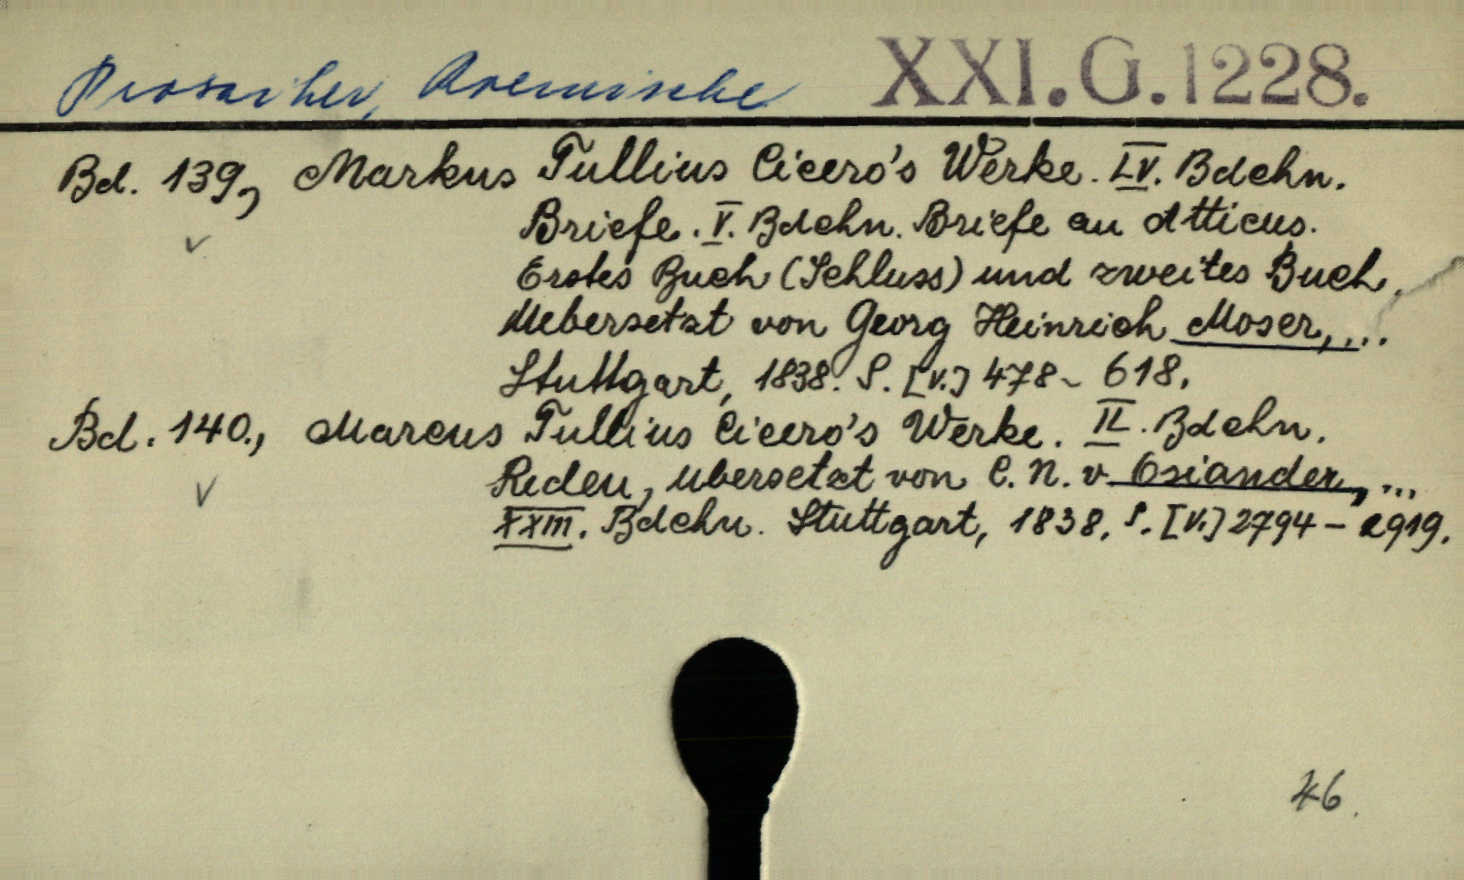 Prosaiker, Roemische XXI.G.1228.
Bd. 139, Markus Tullius Cicero's Werke. LV. Bdchn.
Briefe. V. Bdchn. Briefe an Atticus.
Erstes Buch (Schluss) und zweites Buch,
Uebersetzt von Georg Heinrich Moser, ...
Stuttgart, 1838. S. [V.] 478-618.
Bd. 140., Marcus Tullius Cicero's Werke. II. Bdchn.
Reden, übersetzt von C. N. v. Osiander, ...
XXIII. Bdchn. Stuttgart, 1838. S. [V.] 2794-2919.
46.